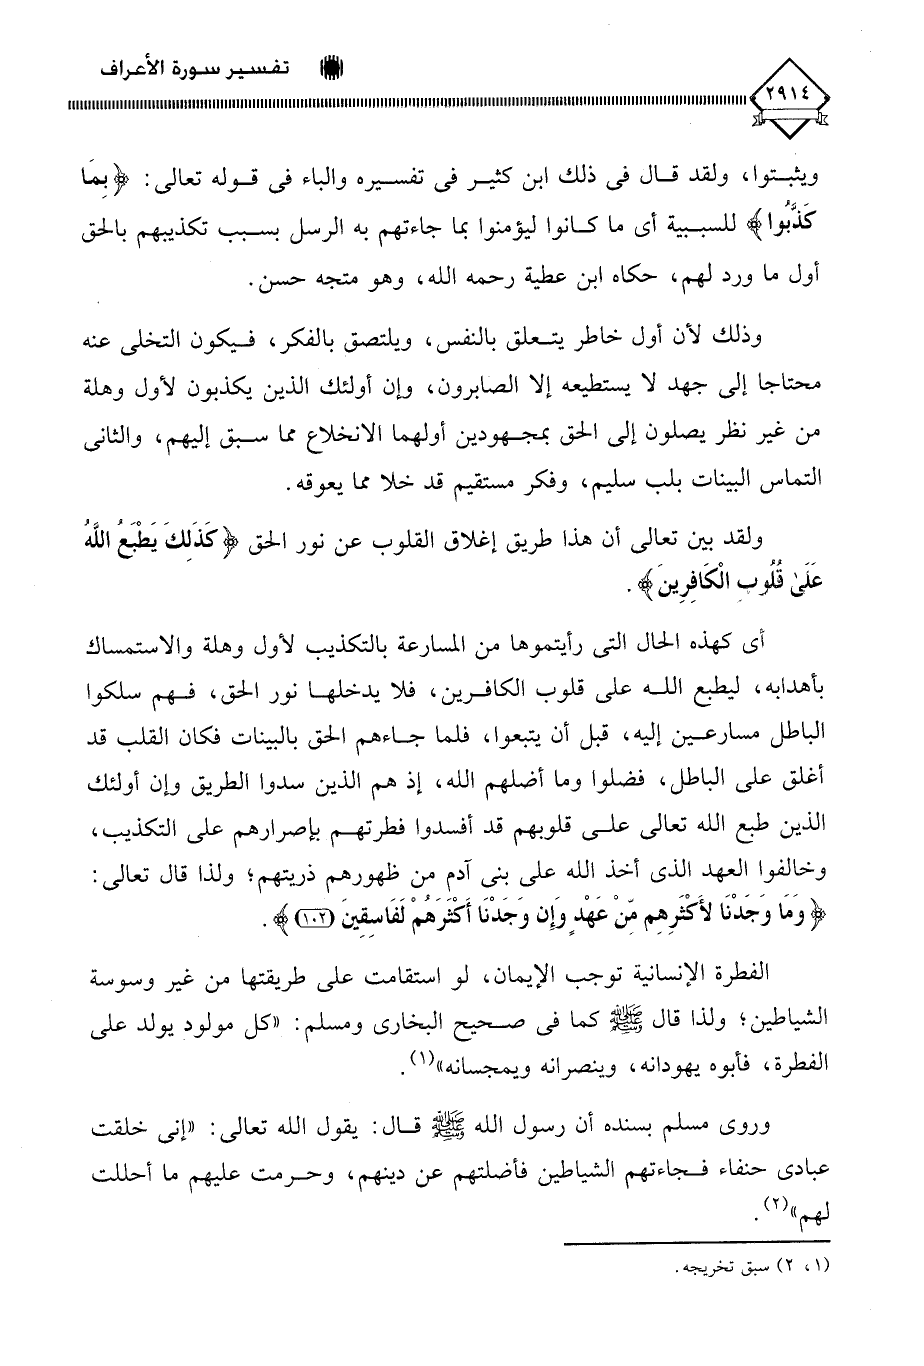 تفسير سورة الأعراف
٢٩١٤
ويثبتوا، ولقد قال فى ذلك ابن كثير فى تفسيره والباء فى قوله تعالى: ﴿بِمَا
كَذَّبُوا﴾ للسببية أى ما كانوا ليؤمنوا بما جاءتهم به الرسل بسبب تكذيبهم بالحق
أول ما ورد لهم، حكاه ابن عطية رحمه الله، وهو متجه حسن.
وذلك لأن أول خاطر يتعلق بالنفس، ويلتصق بالفكر، فيكون التخلى عنه
محتاجا إلى جهد لا يستطيعه إلا الصابرون، وإن أولئك الذين يكذبون لأول وهلة
من غير نظر يصلون إلى الحق بمجهودين أولهما الانخلاع مما سبق إليهم، والثانى
التماس البينات بلب سليم، وفكر مستقيم قد خلا مما يعوقه.
ولقد بين تعالى أن هذا طريق إغلاق القلوب عن نور الحق ﴿كَذَلِكَ يَطْبَعُ اللَّهُ
عَلَىٰ قُلُوبِ الْكَافِرِينَ﴾.
أى كهذه الحال التى رأيتموها من المسارعة بالتكذيب لأول وهلة والاستمساك
بأهدابه، ليطبع الله على قلوب الكافرين، فلا يدخلها نور الحق، فهم سلكوا
الباطل مسارعين إليه، قبل أن يتبعوا، فلما جاءهم الحق بالبينات فكان القلب قد
أغلق على الباطل، فضلوا وما أضلهم الله، إذ هم الذين سدوا الطريق وإن أولئك
الذين طبع الله تعالى على قلوبهم قد أفسدوا فطرتهم بإصرارهم على التكذيب،
وخالفوا العهد الذى أخذ الله على بنى آدم من ظهورهم ذريتهم؛ ولذا قال تعالى:
﴿وَمَا وَجَدْنَا لأَكْثَرِهِم مِّنْ عَهْدٍ وَإِن وَجَدْنَا أَكْثَرَهُمْ لَفَاسِقِينَ (١٠٢)﴾.
الفطرة الإنسانية توجب الإيمان، لو استقامت على طريقتها من غير وسوسة
الشياطين؛ ولذا قال ﷺ كما فى صحيح البخارى ومسلم: «كل مولود يولد على
الفطرة، فأبوه يهودانه، وينصرانه ويمجسانه»(١).
وروى مسلم بسنده أن رسول الله ﷺ قال: يقول الله تعالى: «إنى خلقت
عبادى حنفاء فجاءتهم الشياطين فأضلتهم عن دينهم، وحرمت عليهم ما أحللت
لهم»(٢).
(١، ٢) سبق تخريجه.